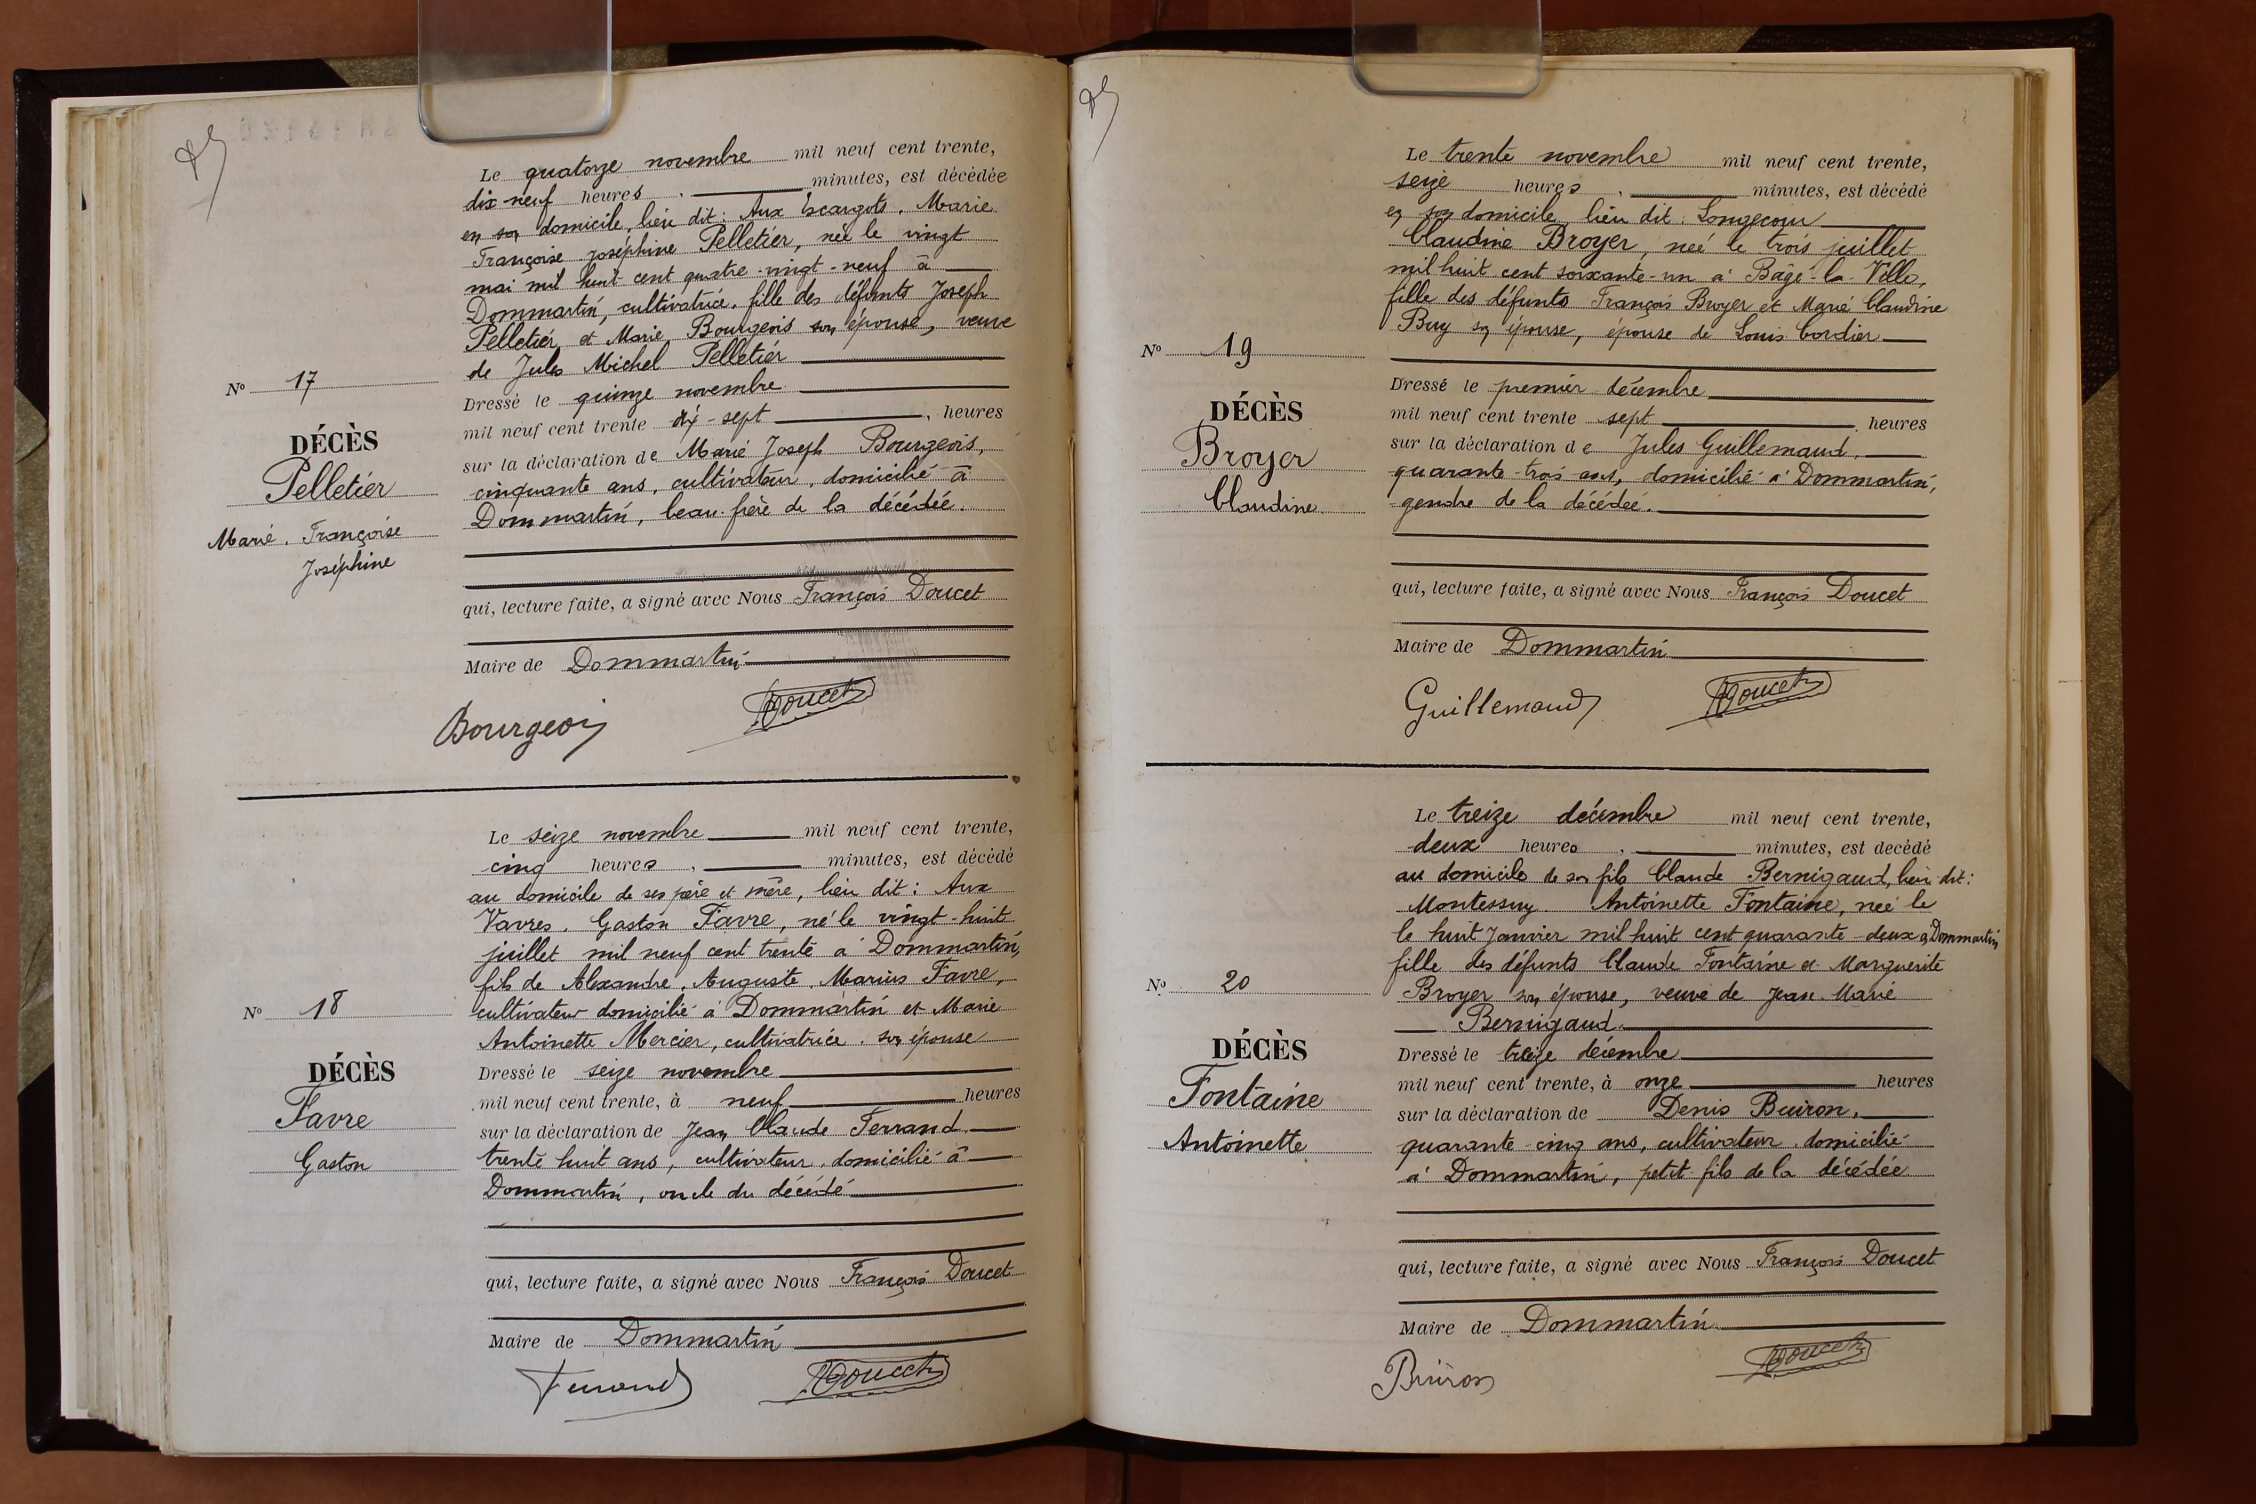 Le quatorze novembre mil neuf cent trente,
dix-neuf heures minutes, est décédée
en son domicile, lieu dit: Aux Escargots. Marie
Françoise Joséphine Pelletier, née le vingt
mai mil huit cent quatre-vingt-neuf à
Dommartin, cultivatrice, fille des défunts Joseph
Pelletier et Marie Bourgeois son épouse, veuve
de Jules Michel Pelletier
No 17
DÉCÈS
Pelletier
Marie. Françoise
Joséphine
Dressé le quinze novembre
mil neuf cent trente dix-sept heures
sur la déclaration de Marie Joseph Bourgeois,
cinquante ans, cultivateur, domicilié à
Dommartin, beau-frère de la décédée.
qui, lecture faite, a signé avec Nous François Doucet
Maire de Dommartin
Bourgeois Doucet
Le seize novembre mil neuf cent trente,
cinq heures minutes, est décédé
au domicile de ses père et mère, lieu dit: Aux
Vavres. Gaston Favre, né le vingt-huit
juillet mil neuf cent trente à Dommartin,
fils de Alexandre, Auguste, Marius Favre,
cultivateur domicilié à Dommartin et Marie
Antoinette Mercier, cultivatrice. son épouse
No 18
DÉCÈS
Favre
Gaston
Dressé le seize novembre
mil neuf cent trente, à neuf heures
sur la déclaration de Jean Claude Ferrand
trente huit ans, cultivateur, domicilié à
Dommartin, oncle du décédé
qui, lecture faite, a signé avec Nous François Doucet
Maire de Dommartin
Ferrand Doucet
Le trente novembre mil neuf cent trente,
seize heures minutes, est décédé
en son domicile, lieu dit: Longecour
Claudine Broyer, née le trois juillet
mil huit cent soixante-un à Bâgé-la-Ville,
fille des défunts François Broyer et Marie Claudine
Buy son épouse, épouse de Louis Cordier
No 19
DÉCÈS
Broyer
Claudine
Dressé le premier décembre
mil neuf cent trente sept heures
sur la déclaration de Jules Guillemaud,
quarante-trois ans, domicilié à Dommartin,
gendre de la décédée.
qui, lecture faite, a signé avec Nous François Doucet
Maire de Dommartin
Guillemaud Doucet
Le treize décembre mil neuf cent trente,
deux heures minutes, est decédé
au domicile de son fils Claude Bernigaud, lieu dit:
Montessuy. Antoinette Fontaine, née le
le huit Janvier mil huit cent quarante-deux à Dommartin
fille des défunts Claude Fontaine et Marguerite
Broyer son épouse, veuve de Jean Marie
Bernigaud
No 20
DÉCÈS
Fontaine
Antoinette
Dressé le treize décembre
mil neuf cent trente, à onze heures
sur la déclaration de Denis Buiron,
quarante-cinq ans, cultivateur domicilié
à Dommartin, petit-fils de la décédée
qui, lecture faite, a signé avec Nous François Doucet
Maire de Dommartin
Buiron Doucet